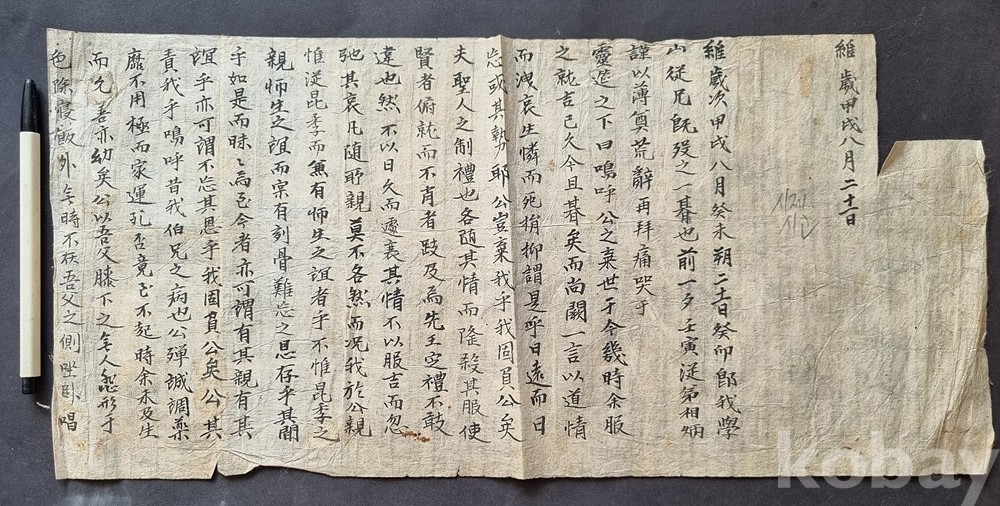 維歲甲戌八月二十一日
維歲次甲戌八月癸未朔二十一日癸卯卽我學
山從兄旣歿之一朞也前一夕壬寅從弟相炳
謹以薄奠荒辭再拜痛哭于
靈筵之下曰嗚呼公之棄世于今幾時余服
之就吉已久今且朞矣而尚闕一言以道情
而洩哀生憐而死捐抑謂是呼日遠而日
忘或其勢耶公豈棄我乎我固負公矣
夫聖人之制禮也各随其情而隆殺其服使
賢者俯就而不肖者跂及焉先王定禮不敢
違也然不以日久而遽衰其情不以服吉而忽
弛其哀凡随耶親莫不各然而况我於公親
惟從昆季而兼有师生之誼者乎不惟昆季之
親师生之誼而宗有刻骨難忘之恩存乎其間
乎如是而昧〻焉已今者亦可謂有其親有其
誼乎亦可謂不忘其恩乎我固負公矣公其
責我乎嗚呼昔我伯兄之病也公殫誠調藥
靡不用極而家運孔否竟至不起時余未及生
而允善亦幼矣公以吾父膝下之無人怨形于
色除寢飯外無時不在吾父之側坐卧唱
kobay